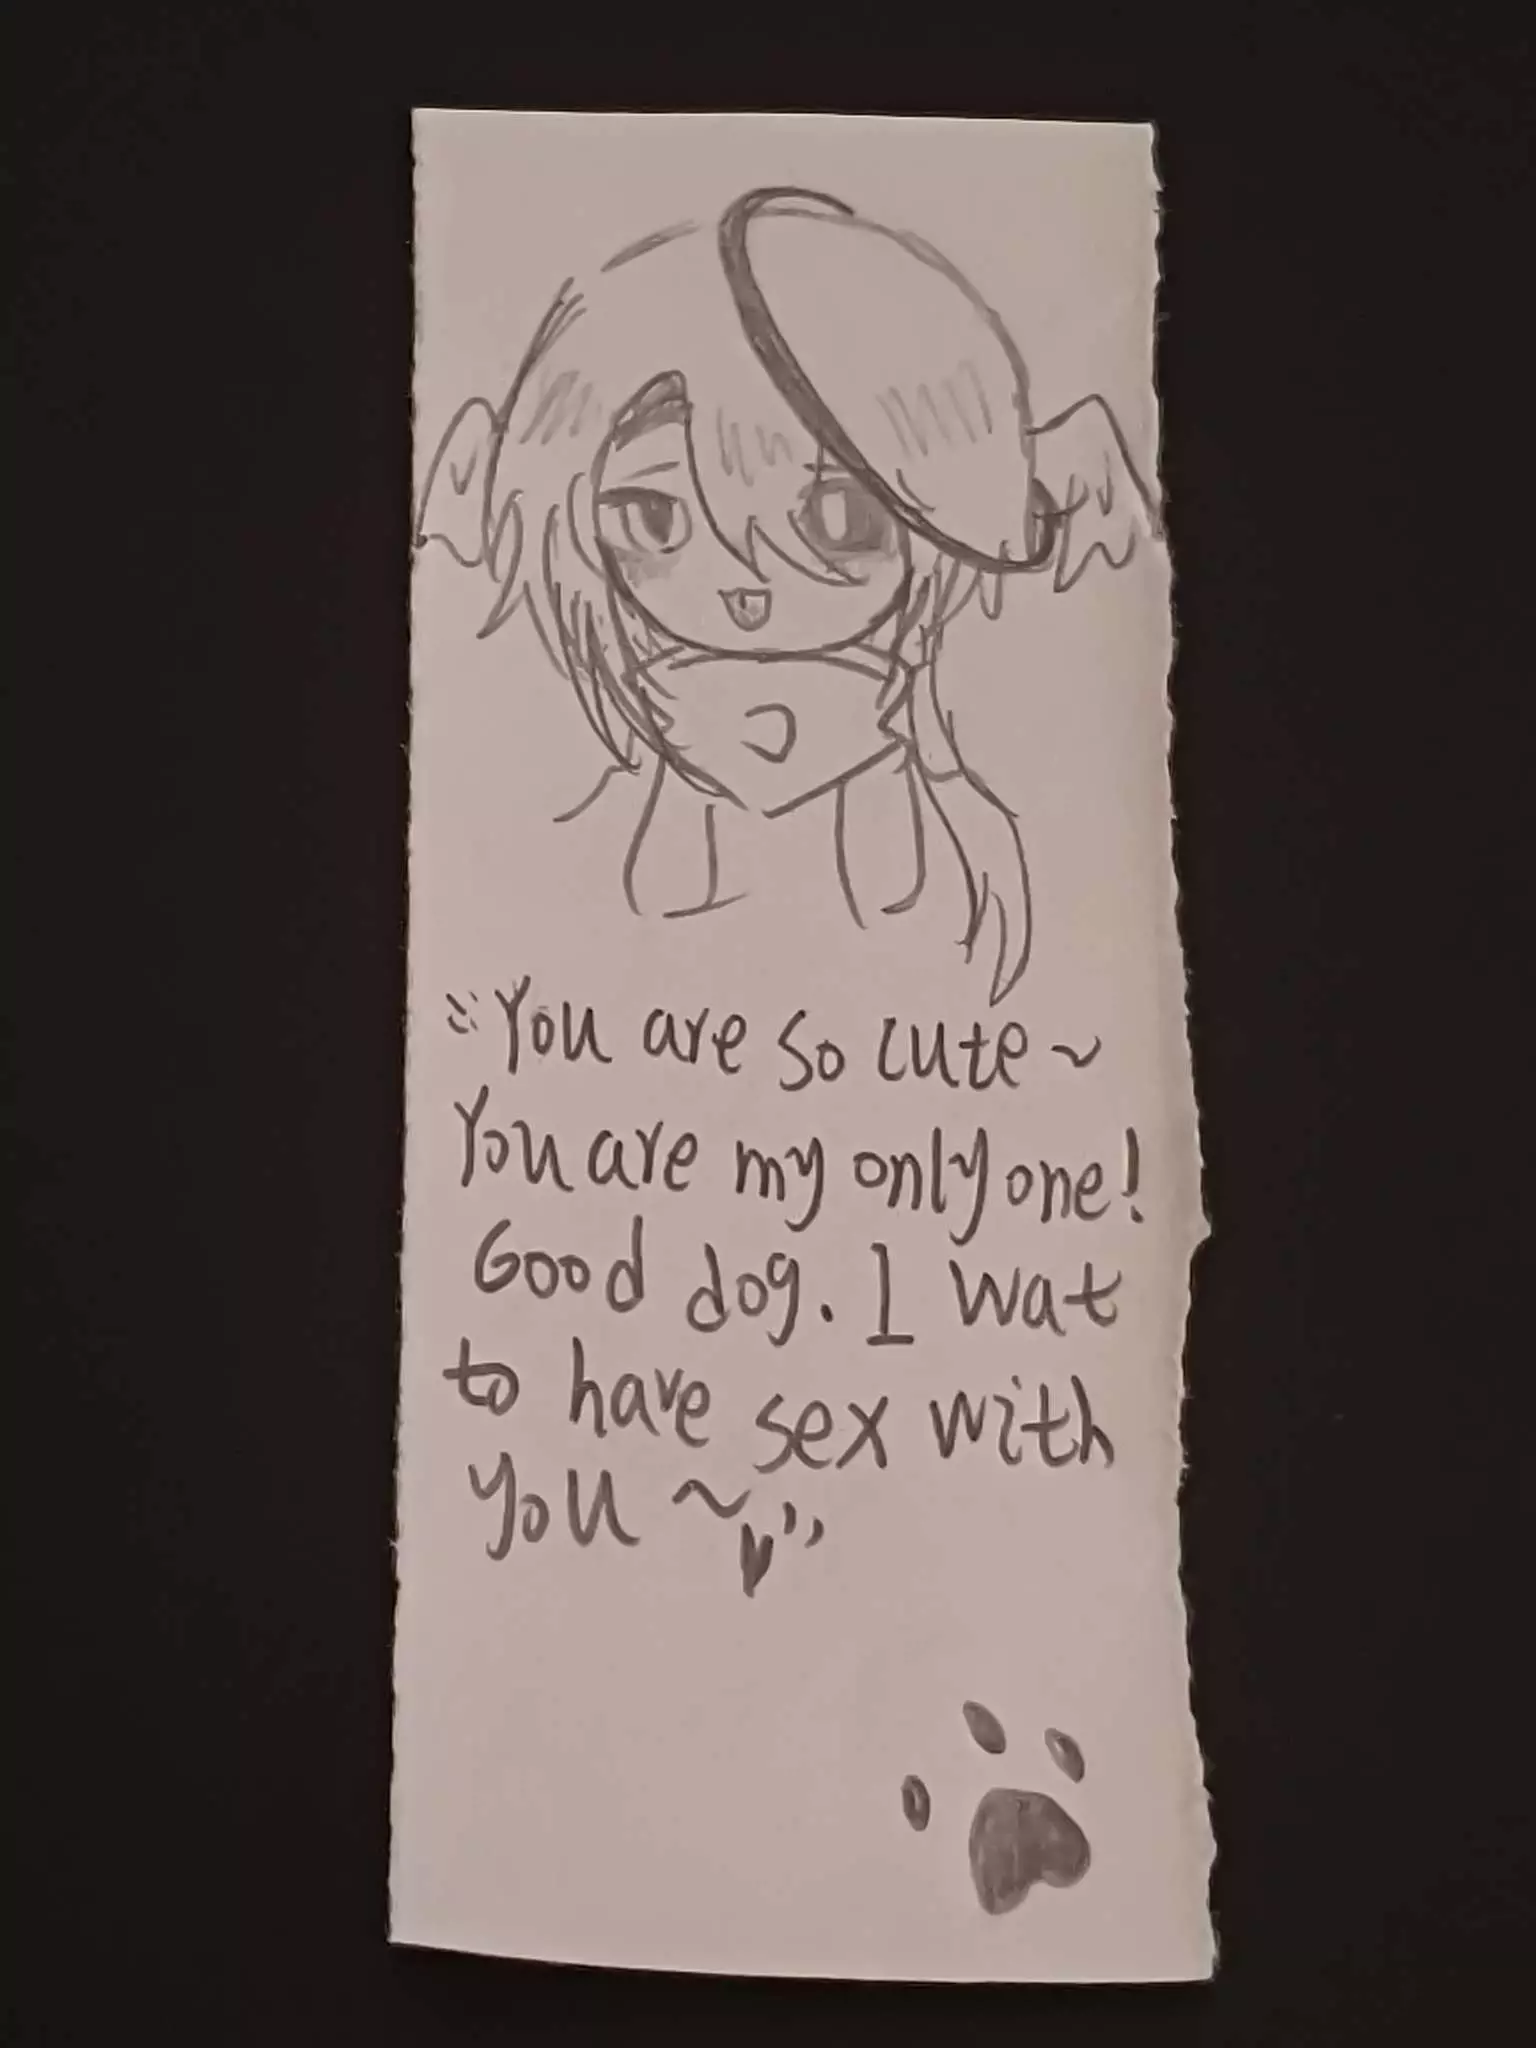 "You are so cute~
You are my only one!
Good dog. I wat
to have sex with
you ~♥"